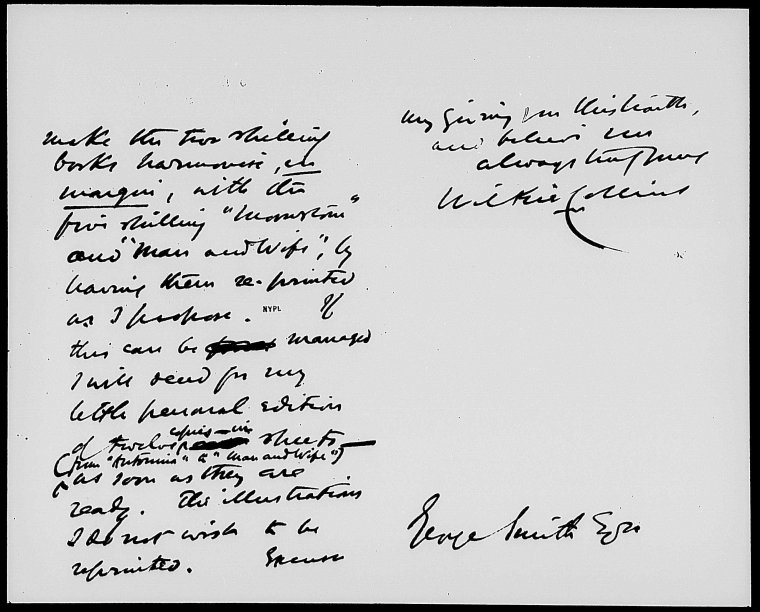 make the two shilling
books harmonise, in
margin, with the
five shilling "Moonstone"
and "Man and Wife", by
having them re-printed
as I propose. If
NYPL
this can be managed
I will send for my
little personal edition
of twelve copies – in sheets –
(from "Antonina" to "Man and Wife")
as soon as they are
ready. The illustrations
I do not wish to be
reprinted. Excuse
my giving you this trouble,
and believe me
always truly yours
Wilkie Collins
George Smith Esqre